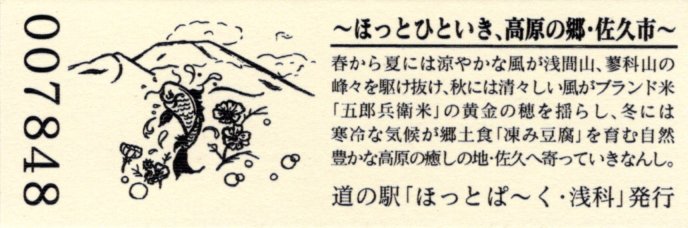 007848
～ほっとひといき、高原の郷・佐久市～
春から夏には涼やかな風が浅間山、蓼科山の
峰々を駆け抜け、秋には清々しい風がブランド米
「五郎兵衛米」の黄金の穂を揺らし、冬には
寒冷な気候が郷土食「凍み豆腐」を育む自然
豊かな高原の癒しの地・佐久へ寄っていきなんし。
道の駅「ほっとぱ～く・浅科」発行